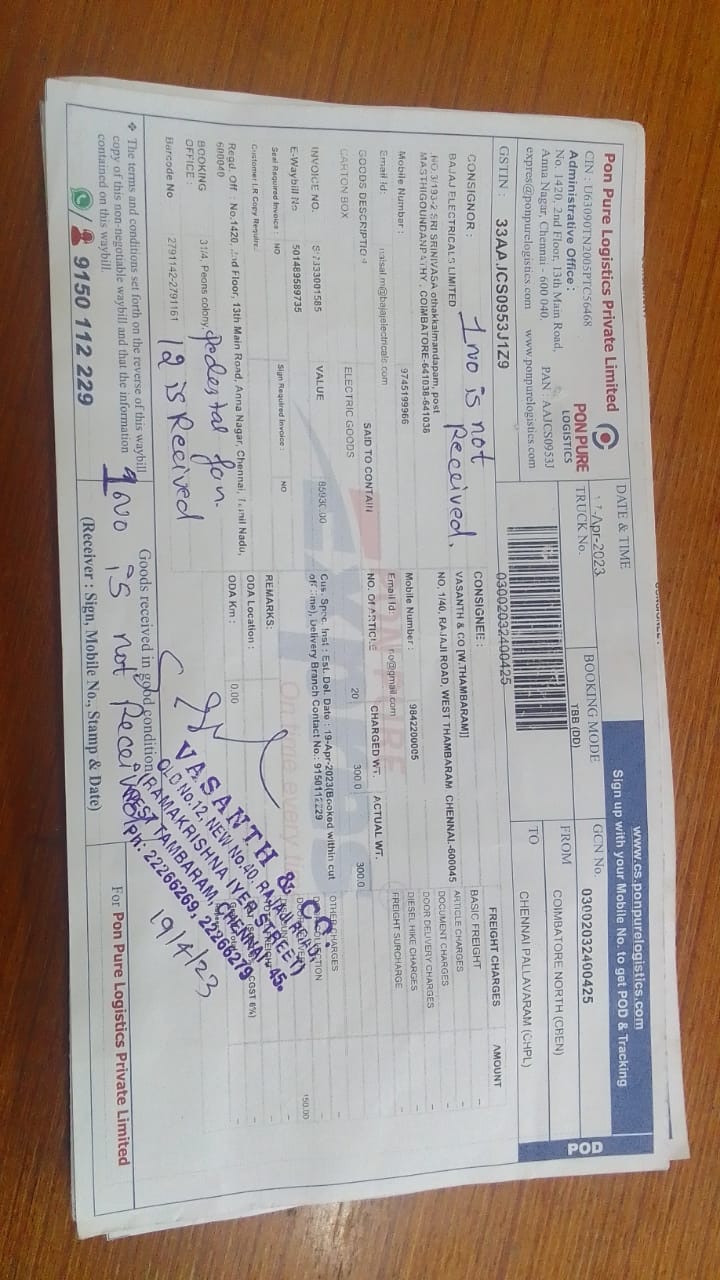 Pon Pure Logistics Private Limited
CIN : U63090TN2005PTC56468
Administrative Office :
No. 1420, 2nd Floor, 13th Main Road,
Anna Nagar, Chennai - 600 040.
PAN : AAJCS0953J
expres@ponpurelogistics.com www.ponpurelogistics.com
PON PURE
LOGISTICS
DATE & TIME
-Apr-2023
TRUCK No.
BOOKING MODE
TBB (DD)
www.cs.ponpurelogistics.com
Sign up with your Mobile No. to get POD & Tracking
GCN No. 03002032400425
FROM COIMBATORE NORTH (CBEN)
TO CHENNAI PALLAVARAM (CHPL)
POD
GSTIN : 33AAJCS0953J1Z9
03002032400425
CONSIGNOR :
BAJAJ ELECTRICALS LIMITED
SRI SRINIVASA othakkalmandapam, post
COIMBATORE-641038-641038
Mobile Number : 9745199966
Email Id: @bajajelectricals.com
1 no is not
Received.
CONSIGNEE :
VASANTH & CO [W.THAMBARAM]]
NO, 1/40, RAJAJI ROAD, WEST THAMBARAM CHENNAI.-600045
Mobile Number : 9842200005
Email Id: co@gmail.com
FREIGHT CHARGES AMOUNT
BASIC FREIGHT -
ARTICLE CHARGES -
DOCUMENT CHARGES -
DOOR DELIVERY CHARGES -
DIESEL HIKE CHARGES -
FREIGHT SURCHARGE -
OTHER CHARGES -
150.00
GOODS DESCRIPTION SAID TO CONTAIN NO. Of ARTICLE CHARGED WT. ACTUAL WT.
CARTON BOX ELECTRIC GOODS 20 300.0 300.0
INVOICE NO. VALUE
Cus. Spec. Inst : Est. Del. Date : 19-Apr-2023(Booked within cut
off time), Delivery Branch Contact No.: 9150112229
E-Waybill No 501489589735
Seal Required Invoice : NO Sign Required Invoice : NO
REMARKS:
Customer LR Copy Require:
ODA Location :
Regd. Off : No.1420, 2nd Floor, 13th Main Road, Anna Nagar, Chennai, Tamil Nadu,
600040
ODA Km : 0.00
BOOKING
OFFICE : 31/4, Peons colony,
Barcode No 2791142-2791161
pedestal fan.
12 is Received
VASANTH & CO.
OLD No.12, NEW No.40, RAJAJI ROAD,
(RAMAKRISHNA IYER STREET)
WEST TAMBARAM, CHENNAI - 45.
Ph: 22266269, 22266279
19/4/23
❖ The terms and conditions set forth on the reverse of this waybill
copy of this non-negotiable waybill and that the information
contained on this waybill.
9150 112 229
Goods received in good condition
1 no is not Received
(Receiver : Sign, Mobile No., Stamp & Date)
For Pon Pure Logistics Private Limited